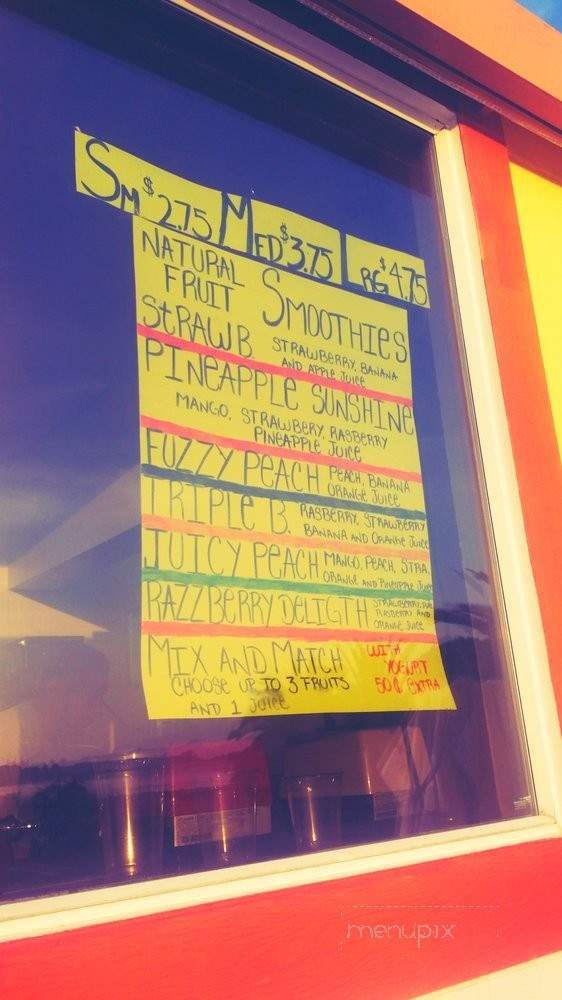 Sm $2.75 MED $3.75 LRG $4.75
NATURAL
FRUIT
SMOOTHIES
STRAWB. STRAWBERRY, BANANA
AND APPLE JUICE
PINEAPPLE SUNSHINE
MANGO, STRAWBERY, RASBERRY
PINEAPPLE JUICE
FUZZY PEACH PEACH, BANANA
ORANGE JUICE
TRIPLE B. RASBERRY, STRAWBERRY
BANANA AND ORANGE JUICE
JUICY PEACH MANGO, PEACH, STRA.
ORANGE AND PINEAPPLE JUICE
RAZZBERRY DELIGTH STRAWBERRY,
RASBERRY AND
ORANGE JUICE
MIX AND MATCH
CHOOSE UP TO 3 FRUITS
AND 1 JUICE
WITH
YOGURT
50¢ EXTRA
menupix